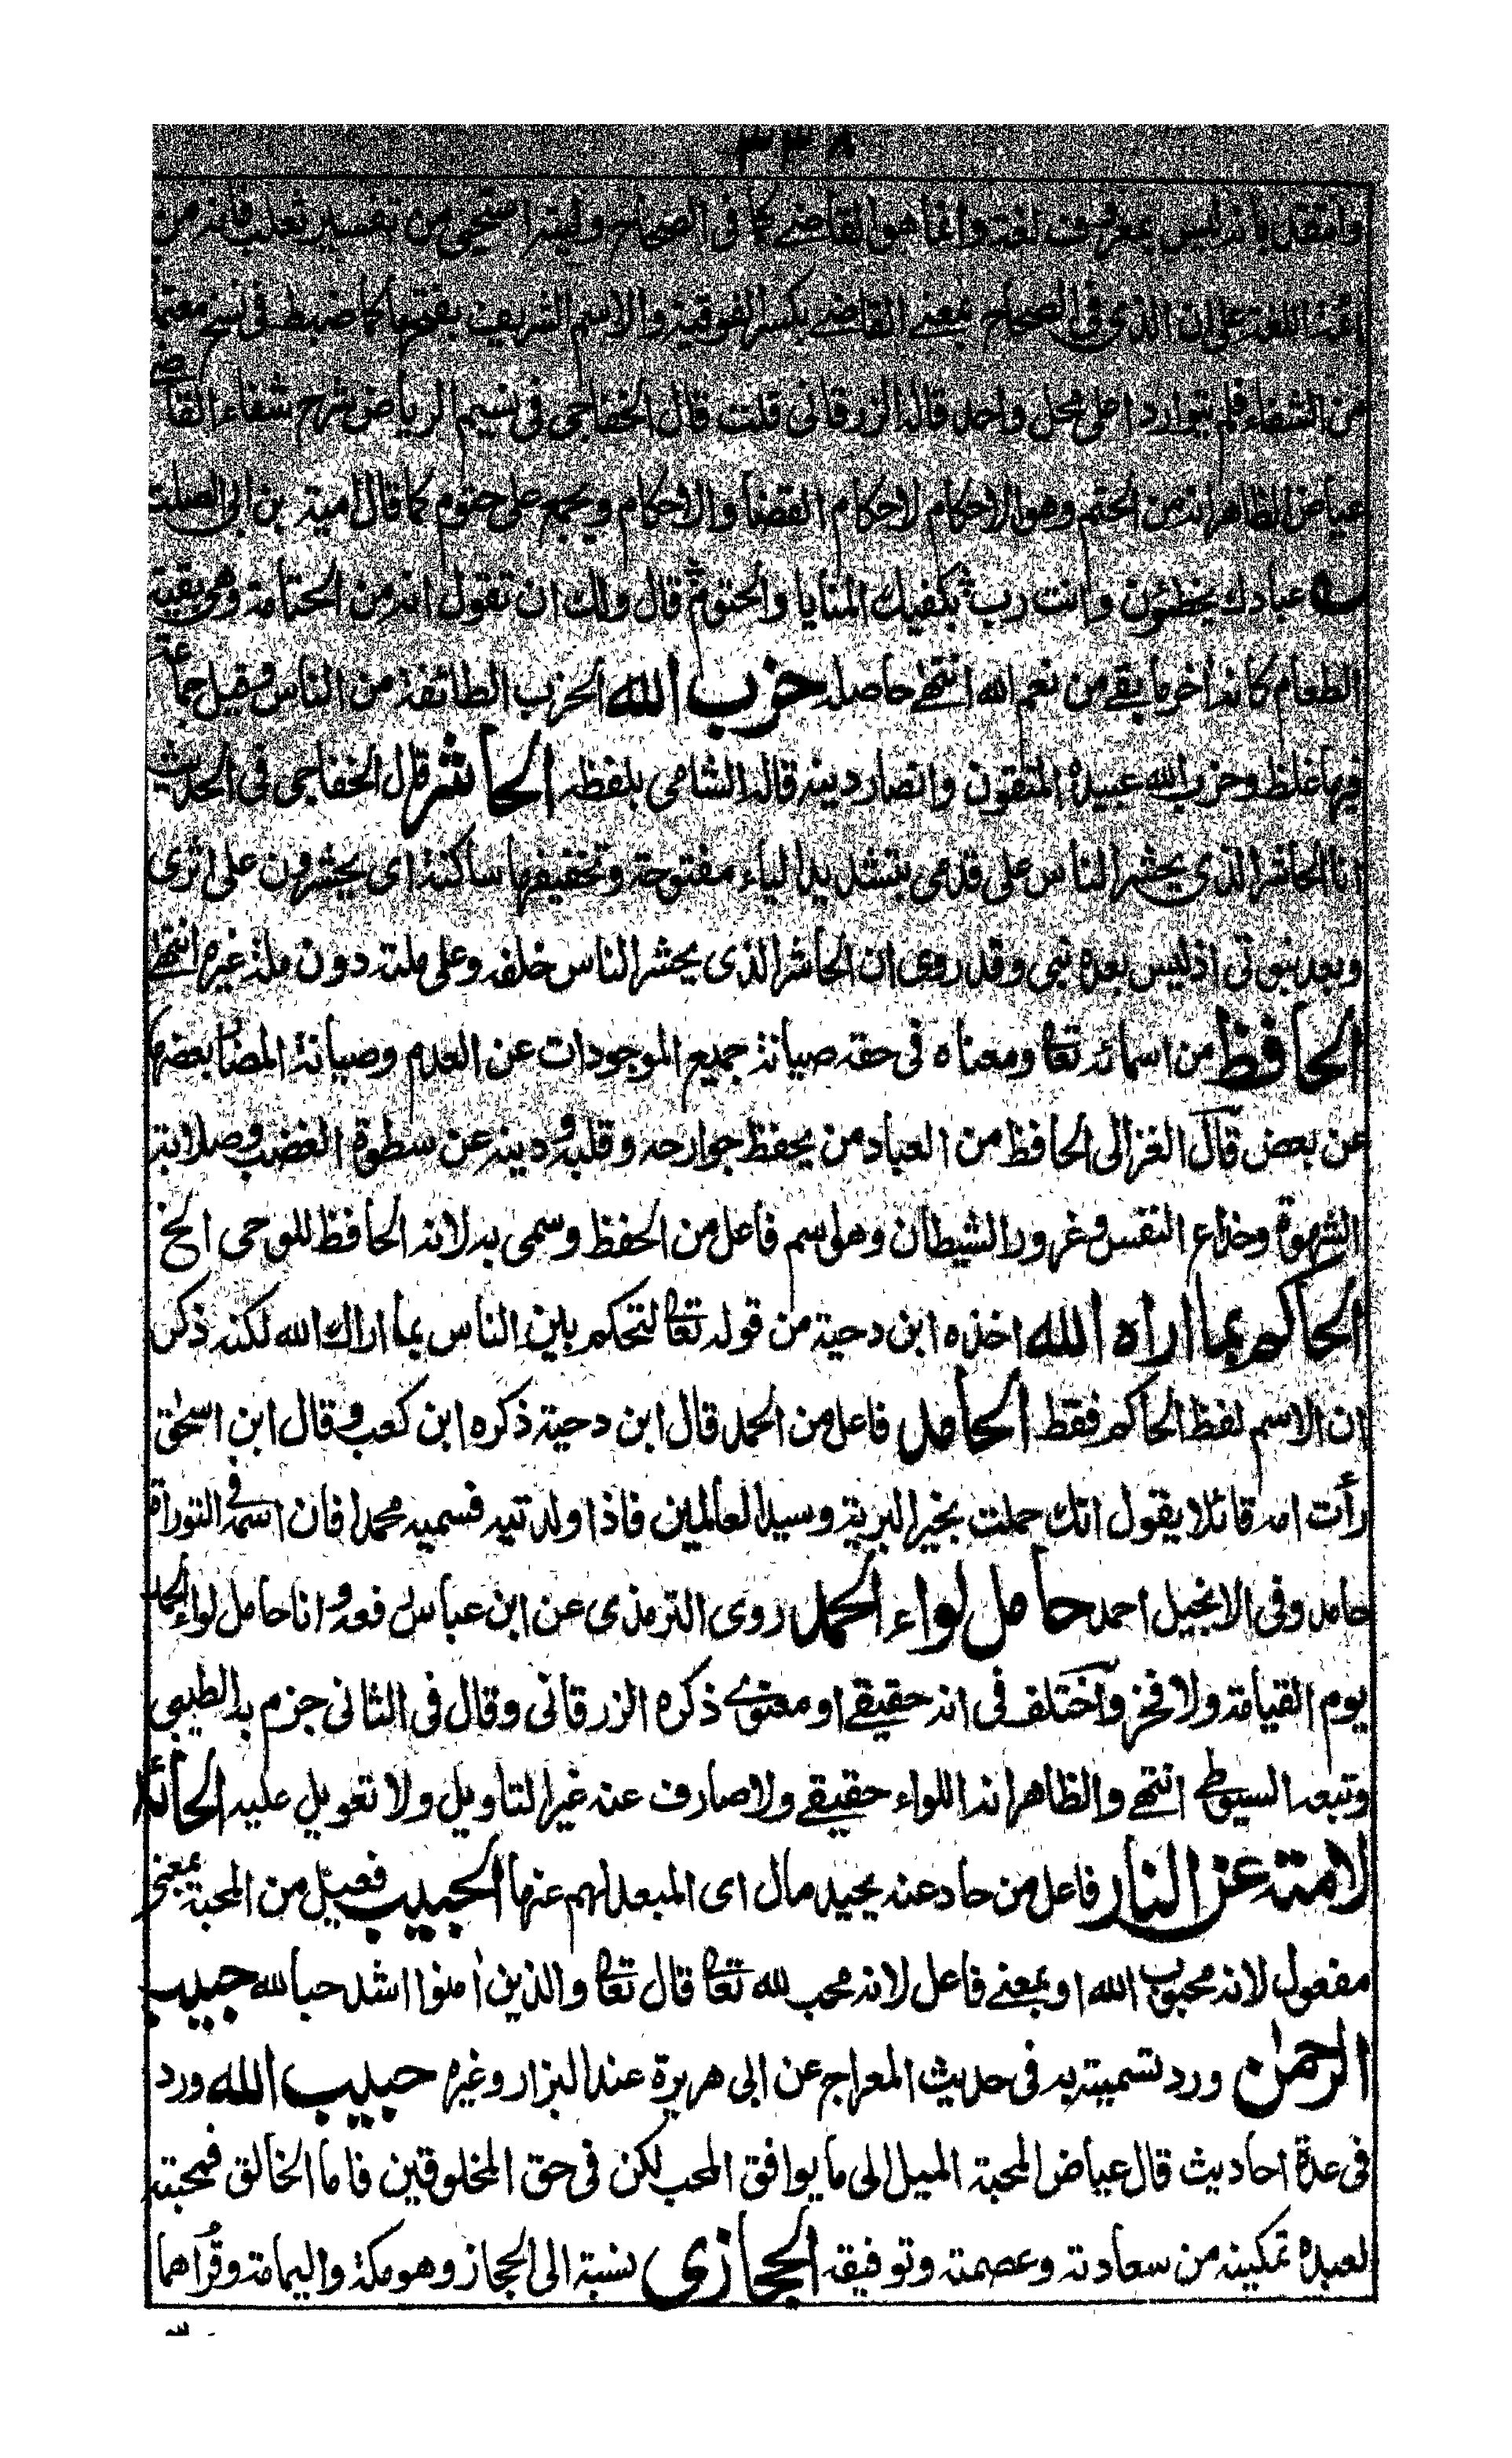 ٣٣٨
وانتقد بانه ليس بمعروف لغة وانما هو القاضے كما فى الصحاح وليته استحيى من تفسير ثعلب فانه من
ائمة اللغة على ان الذى فى الصحاح بمعنے القاضے بكسر الفوقية والاسم الشريف بفتحها كما ضبط فى نسخ معتمدة
من الشفاء فلم يتواردا على محل واحد قاله الزرقانى قلت قال الخفاجى فى نسيم الرياض شرح شفاء القاضے
عياض الظاهر انه من الحتم وهو الاحكام لاحكام القضا والاحكام ويجمع على حتوم كما قال امية بن ابى الصلت
عبادك يخطئون وانت رب بكفيك المنايا والحتوم قال ولك ان تقول انه من الحتامة وهى بقية
الطعام كانه آخر ما بقے من نعم الله انتهے حاصله حزب الله الحزب الطائفة من الناس وقيل جماعة
فيها غلظ وحزب الله عبيده المتقون وانصار دينه قاله الشامى بلفظه الحاشر قال الخفاجى فى الحديث
انا الحاشر الذى يحشر الناس على قدمى بتشديد الياء مفتوحة وتخفيفها ساكنة اى يحشرون على اثرى
وبعد نبوتى اذ ليس بعده نبى وقد روى ان الحاشر الذى يحشر الناس خلفه وعلى ملته دون ملة غيره انتهے
الحافظ من اسمائه تعا ومعناه فى حقه صيانة جميع الموجودات عن العدم وصيانة المضاد بعضها
عن بعض قال الغزالى الحافظ من العباد من يحفظ جوارحه وقلبه ودينه عن سطوة الغضب وصلابة
الشهوة وخداع النفس وغرور الشيطان وهو اسم فاعل من الحفظ وسمى به لانه الحافظ للوحى الخ
الحاكم بما اراه الله اخذه ابن دحية من قوله تعا لتحكم بين الناس بما اراك الله لكنه ذكر
ان الاسم لفظ الحاكم فقط الحامد فاعل من الحمد قال ابن دحية ذكره ابن كعب وقال ابن اسحٰق
رأت امه قائلا يقول انك حملت بخير البرية وسيد العالمين فاذا ولدتيه فسميه محمدا فان اسمه فى التوراة
حامد وفى الانجيل احمد حامل لواء الحمد روى الترمذى عن ابن عباس رفعه وانا حامل لواء الحمد
يوم القيامة ولا فخر واختلف فى انه حقيقے او معنوے ذكره الزرقانى وقال فى الثانى جزم به الطيبى
وتبعه السيوطے انتهے والظاهر انه اللواء حقيقے ولا صارف عنه غير التاويل ولا تعويل عليه الحائد
لامته عن النار فاعل من حاد عنه يحيد مال اى المبعد لهم عنها الحبيب فعيل من المحبة بمعنى
مفعول لانه محبوب الله او بمعنے فاعل لانه محب لله تعا قال تعا والذين اٰمنوا اشد حبا لله حبيب
الرحمٰن ورد تسميته به فى حديث المعراج عن ابى هريرة عند البزار وغيره حبيب الله ورد
فى عدة احاديث قال عياض المحبة الميل الى ما يوافق المحب لكن فى حق المخلوقين فاما الخالق فمحبته
لعبده تمكينه من سعادته وعصمته وتوفيقه الحجازى نسبة الى الحجاز وهو مكة واليمامة وقراهما